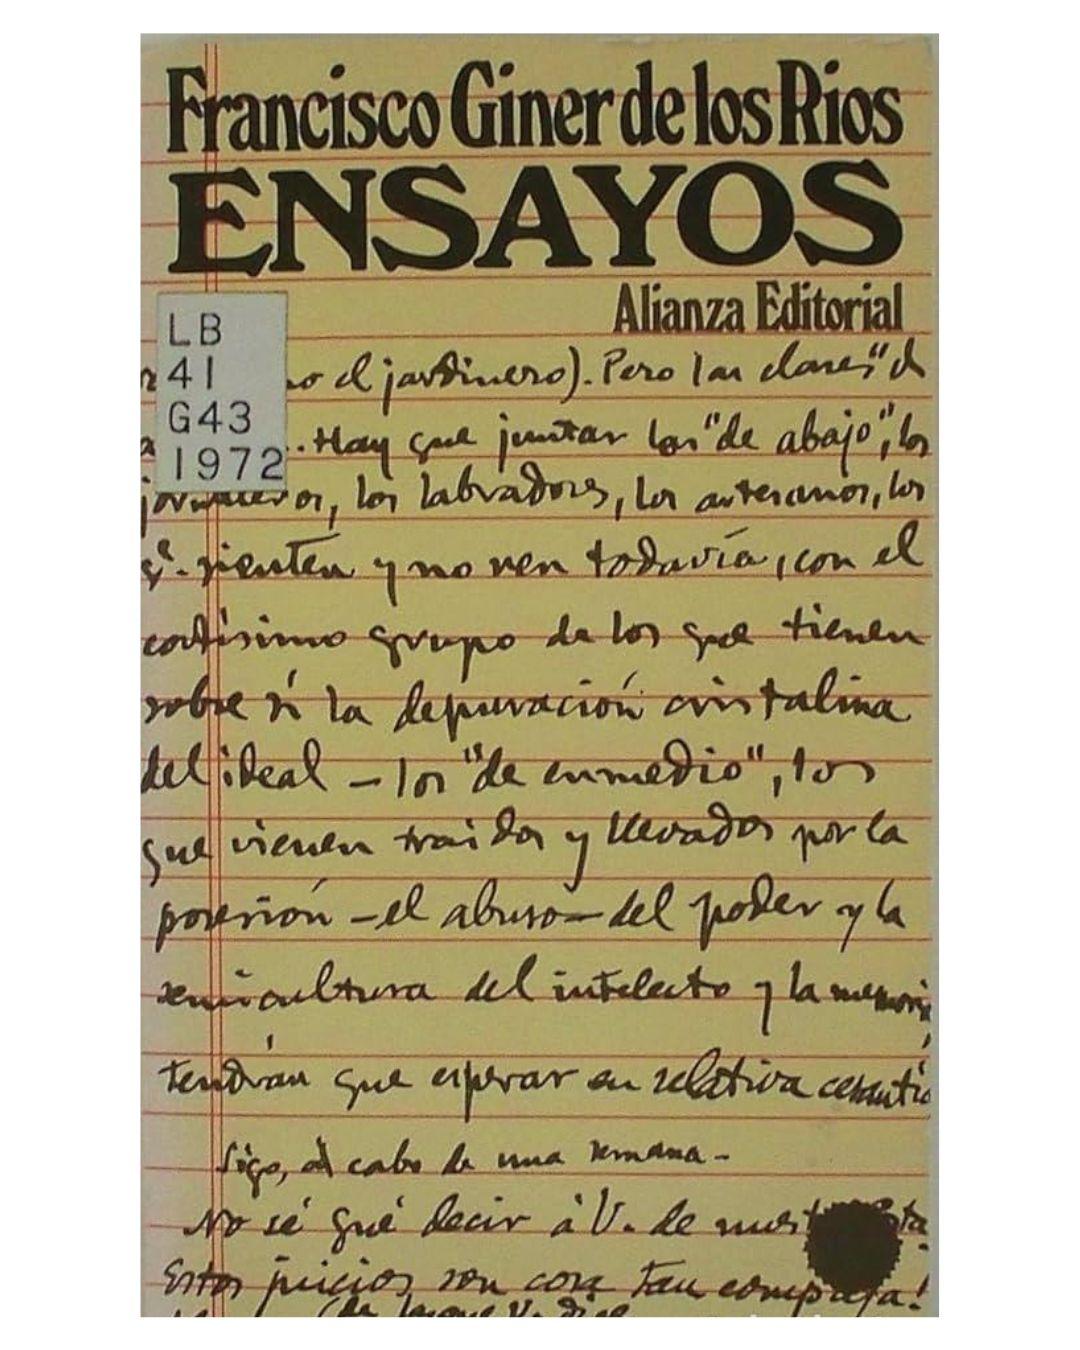 Francisco Giner de los Rios
ENSAYOS
Alianza Editorial
LB
41
G43
1972
no el jardinero). Pero las clases "d
..Hay que juntar los "de abajo", los
jornaleros, los labradores, los artesanos, los
q.e sienten y no ven todavía, con el
cortísimo grupo de los que tienen
sobre sí la depuración cristalina
del ideal – los "de enmedio", los
que vienen traidos y llevados por la
posesión –el abuso– del poder y la
semicultura del intelecto y la memoria,
tendrán que esperar en relativa cesantía
Sigo, al cabo de una semana –
No sé qué decir á V. de
Estos juicios son cosa tan compleja!